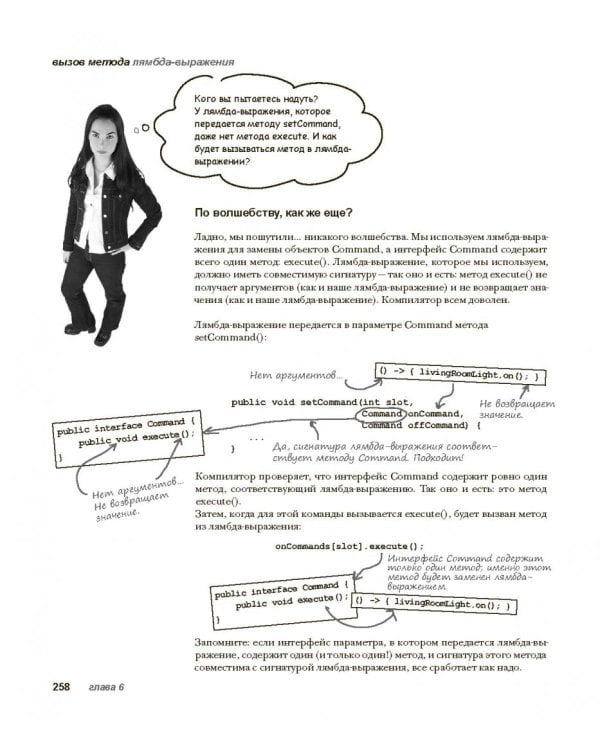 вызов метода лямбда-выражения
Кого вы пытаетесь надуть?
У лямбда-выражения, которое
передается методу setCommand,
даже нет метода execute. И как
будет вызываться метод в лямбда-
выражении?
По волшебству, как же еще?
Ладно, мы пошутили... никакого волшебства. Мы используем лямбда-выра-
жения для замены объектов Command, а интерфейс Command содержит
всего один метод: execute(). Лямбда-выражение, которое мы используем,
должно иметь совместимую сигнатуру — так оно и есть: метод execute() не
получает аргументов (как и наше лямбда-выражение) и не возвращает зна-
чения (как и наше лямбда-выражение). Компилятор всем доволен.
Лямбда-выражение передается в параметре Command метода
setCommand():
Нет аргументов...
() -> { livingRoomLight.on(); }
Не возвращает
значение.
public void setCommand(int slot,
Command onCommand,
Command offCommand) {
...
}
public interface Command {
public void execute();
}
Да, сигнатура лямбда-выражения соответ-
ствует методу Command. Подходит!
Нет аргументов...
Не возвращает
значение.
Компилятор проверяет, что интерфейс Command содержит ровно один
метод, соответствующий лямбда-выражению. Так оно и есть: это метод
execute().
Затем, когда для этой команды вызывается execute(), будет вызван метод
из лямбда-выражения:
onCommands[slot].execute();
Интерфейс Command содержит
только один метод; именно этот
метод будет заменен лямбда-
выражением.
public interface Command {
public void execute();
}
() -> { livingRoomLight.on(); }
Запомните: если интерфейс параметра, в котором передается лямбда-вы-
ражение, содержит один (и только один!) метод, и сигнатура этого метода
совместима с сигнатурой лямбда-выражения, все сработает как надо.
258 глава 6